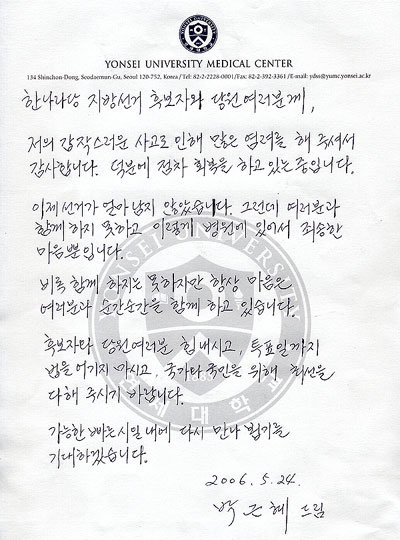 YONSEI UNIVERSITY MEDICAL CENTER
134 Shinchon-Dong, Seodaemun-Gu, Seoul 120-752, Korea / Tel: 82-2-2228-0001/Fax: 82-2-392-3361 / E-mail: ydss@yumc.yonsei.ac.kr
한나라당 지방선거 후보자와 당원여러분께,
저의 갑작스러운 사고로 인해 많은 염려를 해 주셔서
감사합니다. 덕분에 점차 회복을 하고 있는 중입니다.
이제 선거가 얼마 남지 않았습니다. 그런데 여러분과
함께 하지 못하고 이렇게 병원에 있어서 죄송한
마음뿐입니다.
비록 함께 하지는 못하지만 항상 마음은
여러분과 순간순간을 함께 하고 있습니다.
후보자와 당원여러분 힘내시고, 투표일까지
법을 어기지 마시고, 국가와 국민을 위해 최선을
다해 주시기 바랍니다.
가능한 빠른 시일 내에 다시 만나 뵙기를
기대하겠습니다.
2006. 5. 24.
박근혜 드림
YONSEI UNIVERSITY
1885
연세대학교